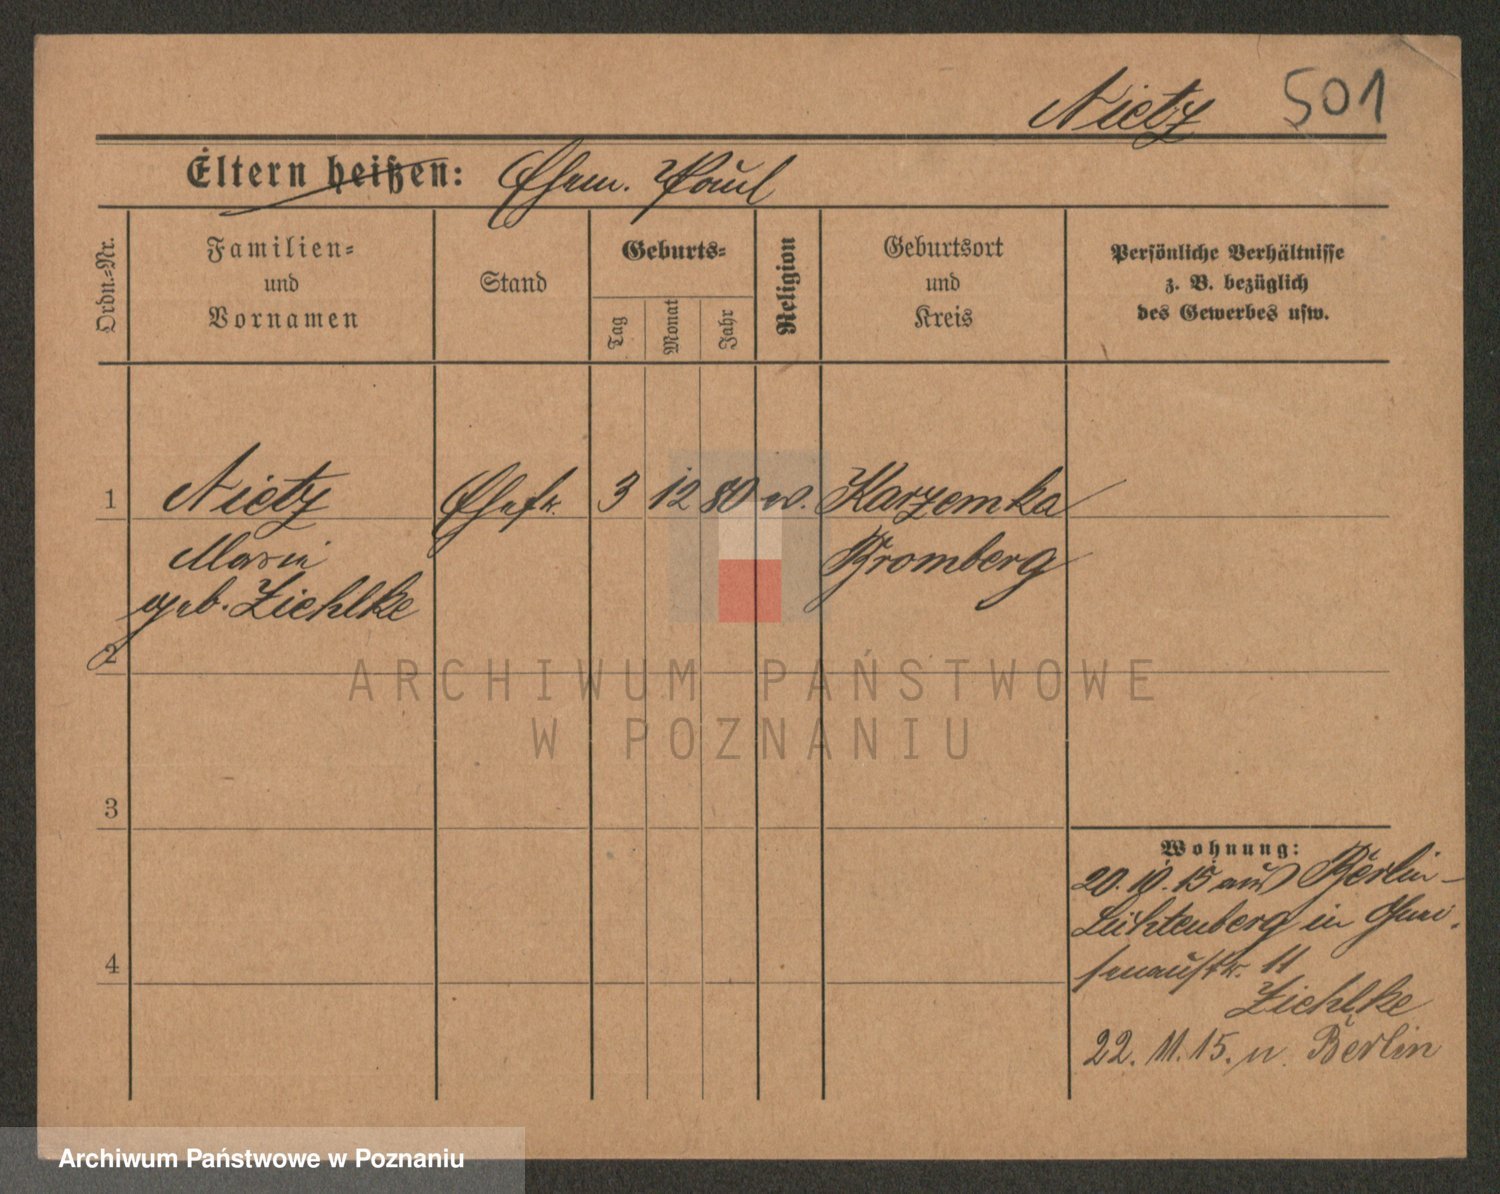 Nietz 501
Eltern heißen: Ehem. Paul
Ordn.=Nr.
Familien=
und
Vornamen
Stand
Geburts=
Tag
Monat
Jahr
Religion
Geburtsort
und
Kreis
Persönliche Verhältnisse
z. B. bezüglich
des Gewerbes usw.
1 Nietz Ehefr. 3 12 80 ev. Karzemka
Marie Bromberg
geb. Ziehlke
2
3
4
Wohnung:
20. 10. 15 aus Berlin-
Lichtenberg in Gnei-
senaustr. 11
Ziehlke
22. 11. 15. n. Berlin
ARCHIWUM PAŃSTWOWE
W POZNANIU
Archiwum Państwowe w Poznaniu